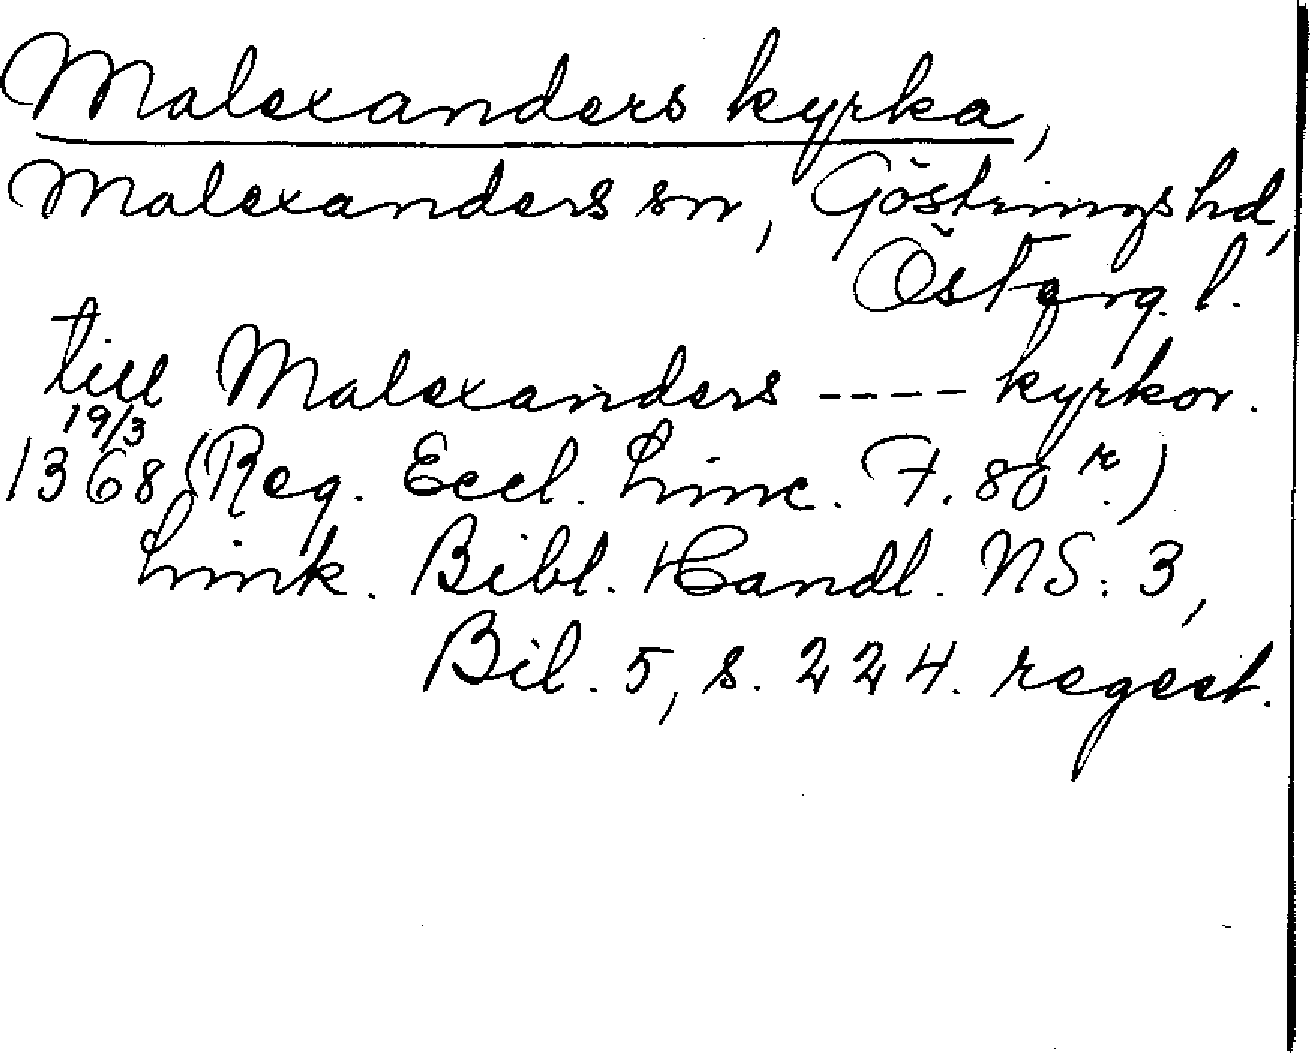 Malexanders kyrka,
Malexanders sn, Göstrings hd,
Österg. l.
till Malexanders ---- kyrkor.
19/3
1368 (Reg. Eccl. Linc. F. 80 r.)
Link. Bibl. Handl. NS: 3,
Bil. 5, s. 224. regest.